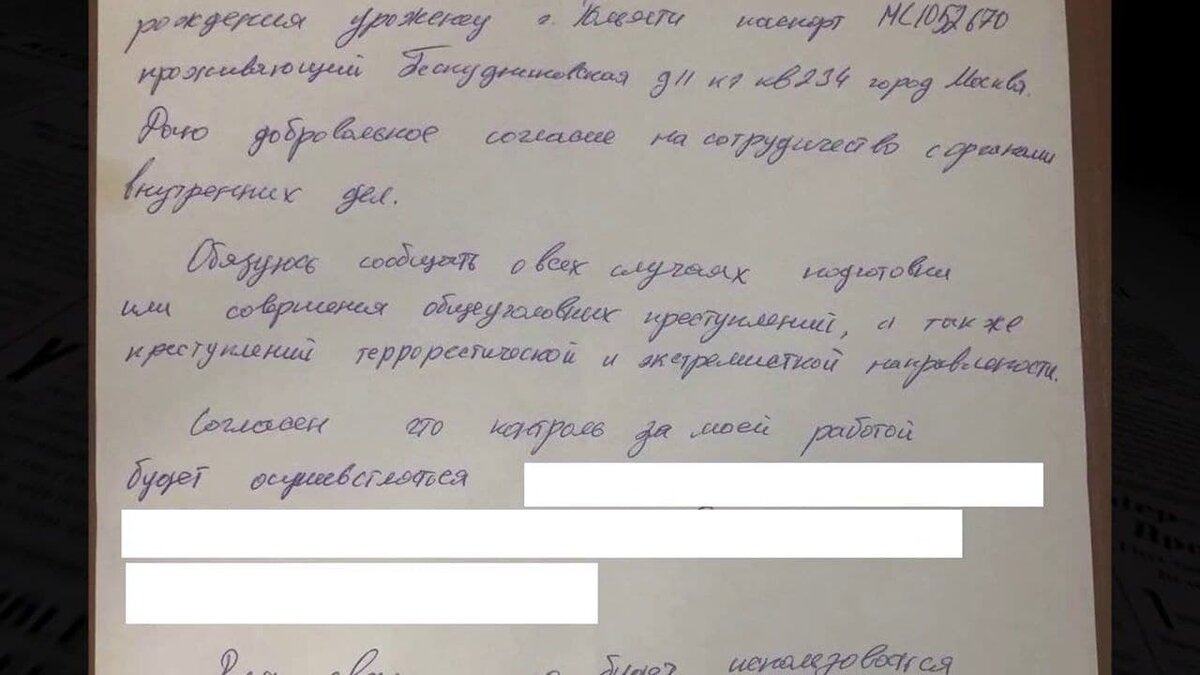 рождения уроженец г. паспорт МС1052670
проживающий Бескудниковская д11 к1 кв234 город Москва.
Даю добровольное согласие на сотрудичество с органами
внутренних дел.
Обязуюсь сообщать о всех случаях подготовки
или совршения общеуголовних преступлений, а также
преступлений террорестической и экстремисткой направлености.
Согласен что контроль за моей работой
будет
будет использоватся